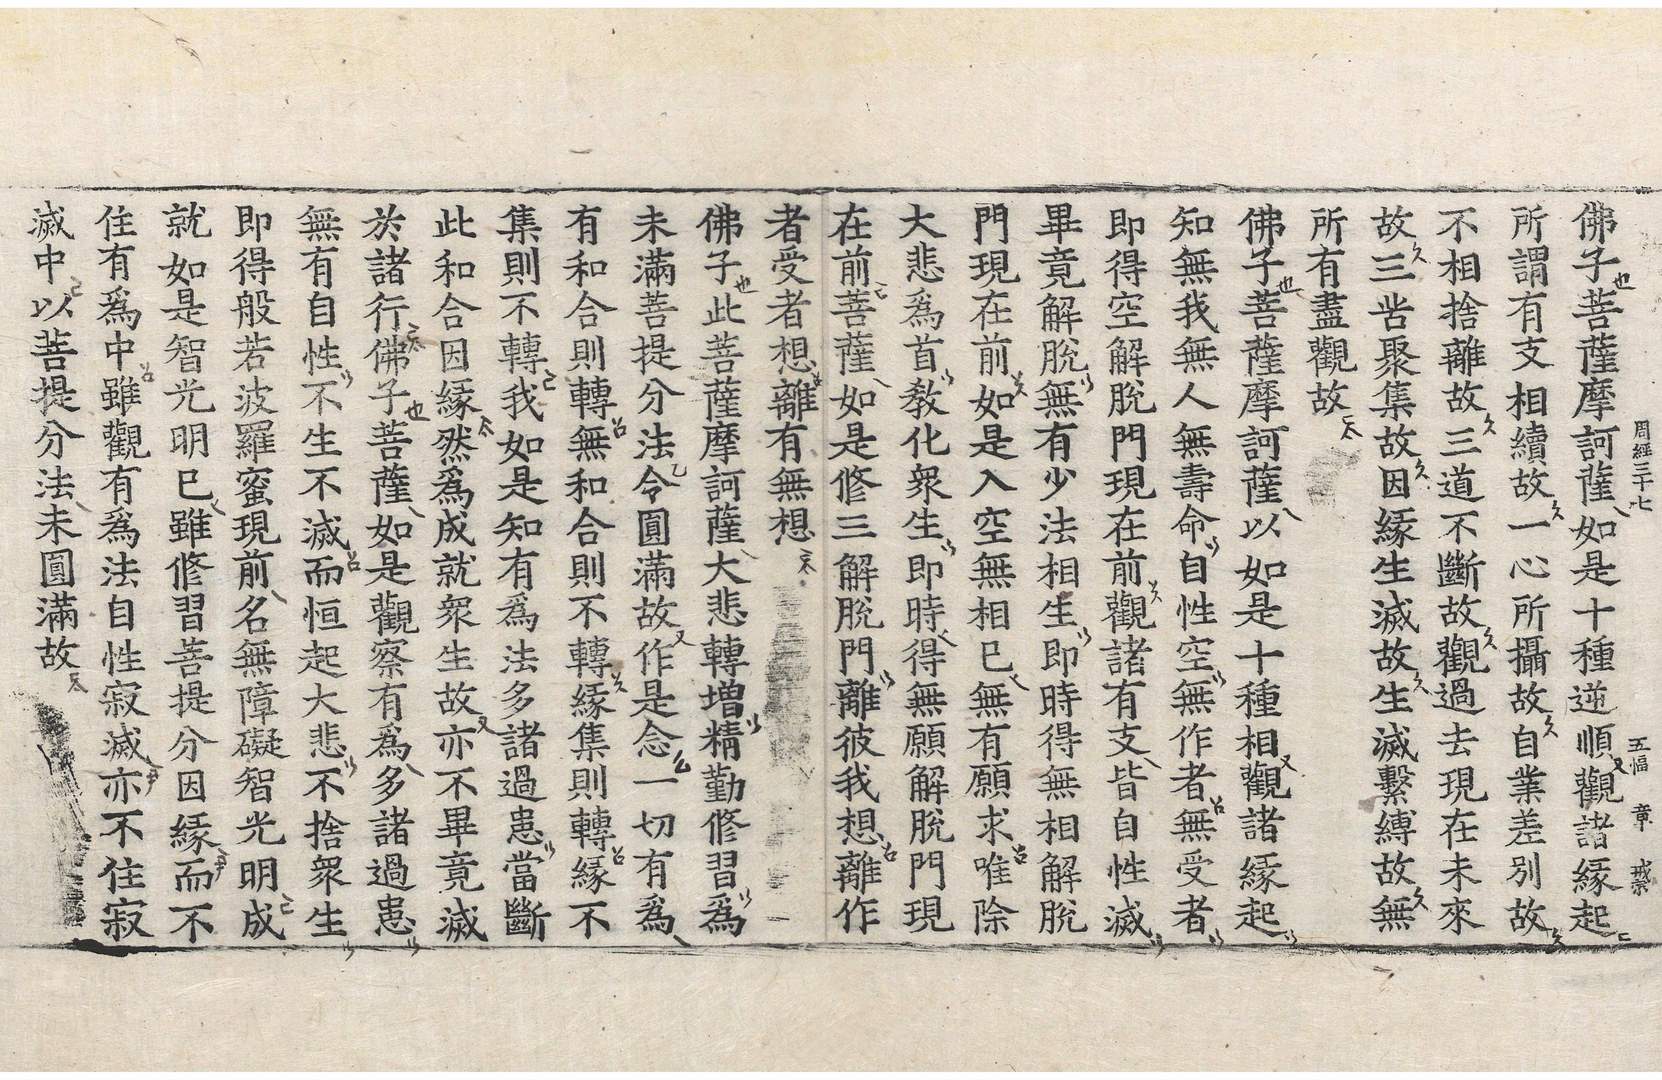 周經三十七 五幅 章 戒崇
佛子菩薩摩訶薩如是十種逆順觀諸緣起
所謂有支相續故一心所攝故自業差別故
不相捨離故三道不斷故觀過去現在未來
故三苦聚集故因緣生滅故生滅繫縛故無
所有盡觀故
佛子菩薩摩訶薩以如是十種相觀諸緣起
知無我無人無壽命自性空無作者無受者
即得空解脫門現在前觀諸有支皆自性滅
畢竟解脫無有少法相生即時得無相解脫
門現在前如是入空無相已無有願求唯除
大悲爲首敎化衆生即時得無願解脫門現
在前菩薩如是修三解脫門離彼我想離作
者受者想離有無想
佛子此菩薩摩訶薩大悲轉增精勤修習爲
未滿菩提分法令圓滿故作是念一切有爲
有和合則轉無和合則不轉緣集則轉緣不
集則不轉我如是知有爲法多諸過患當斷
此和合因緣然爲成就衆生故亦不畢竟滅
於諸行佛子菩薩如是觀察有爲多諸過患
無有自性不生不滅而恒起大悲不捨衆生
即得般若波羅蜜現前名無障礙智光明成
就如是智光明已雖修習菩提分因緣而不
住有爲中雖觀有爲法自性寂滅亦不住寂
滅中以菩提分法未圓滿故